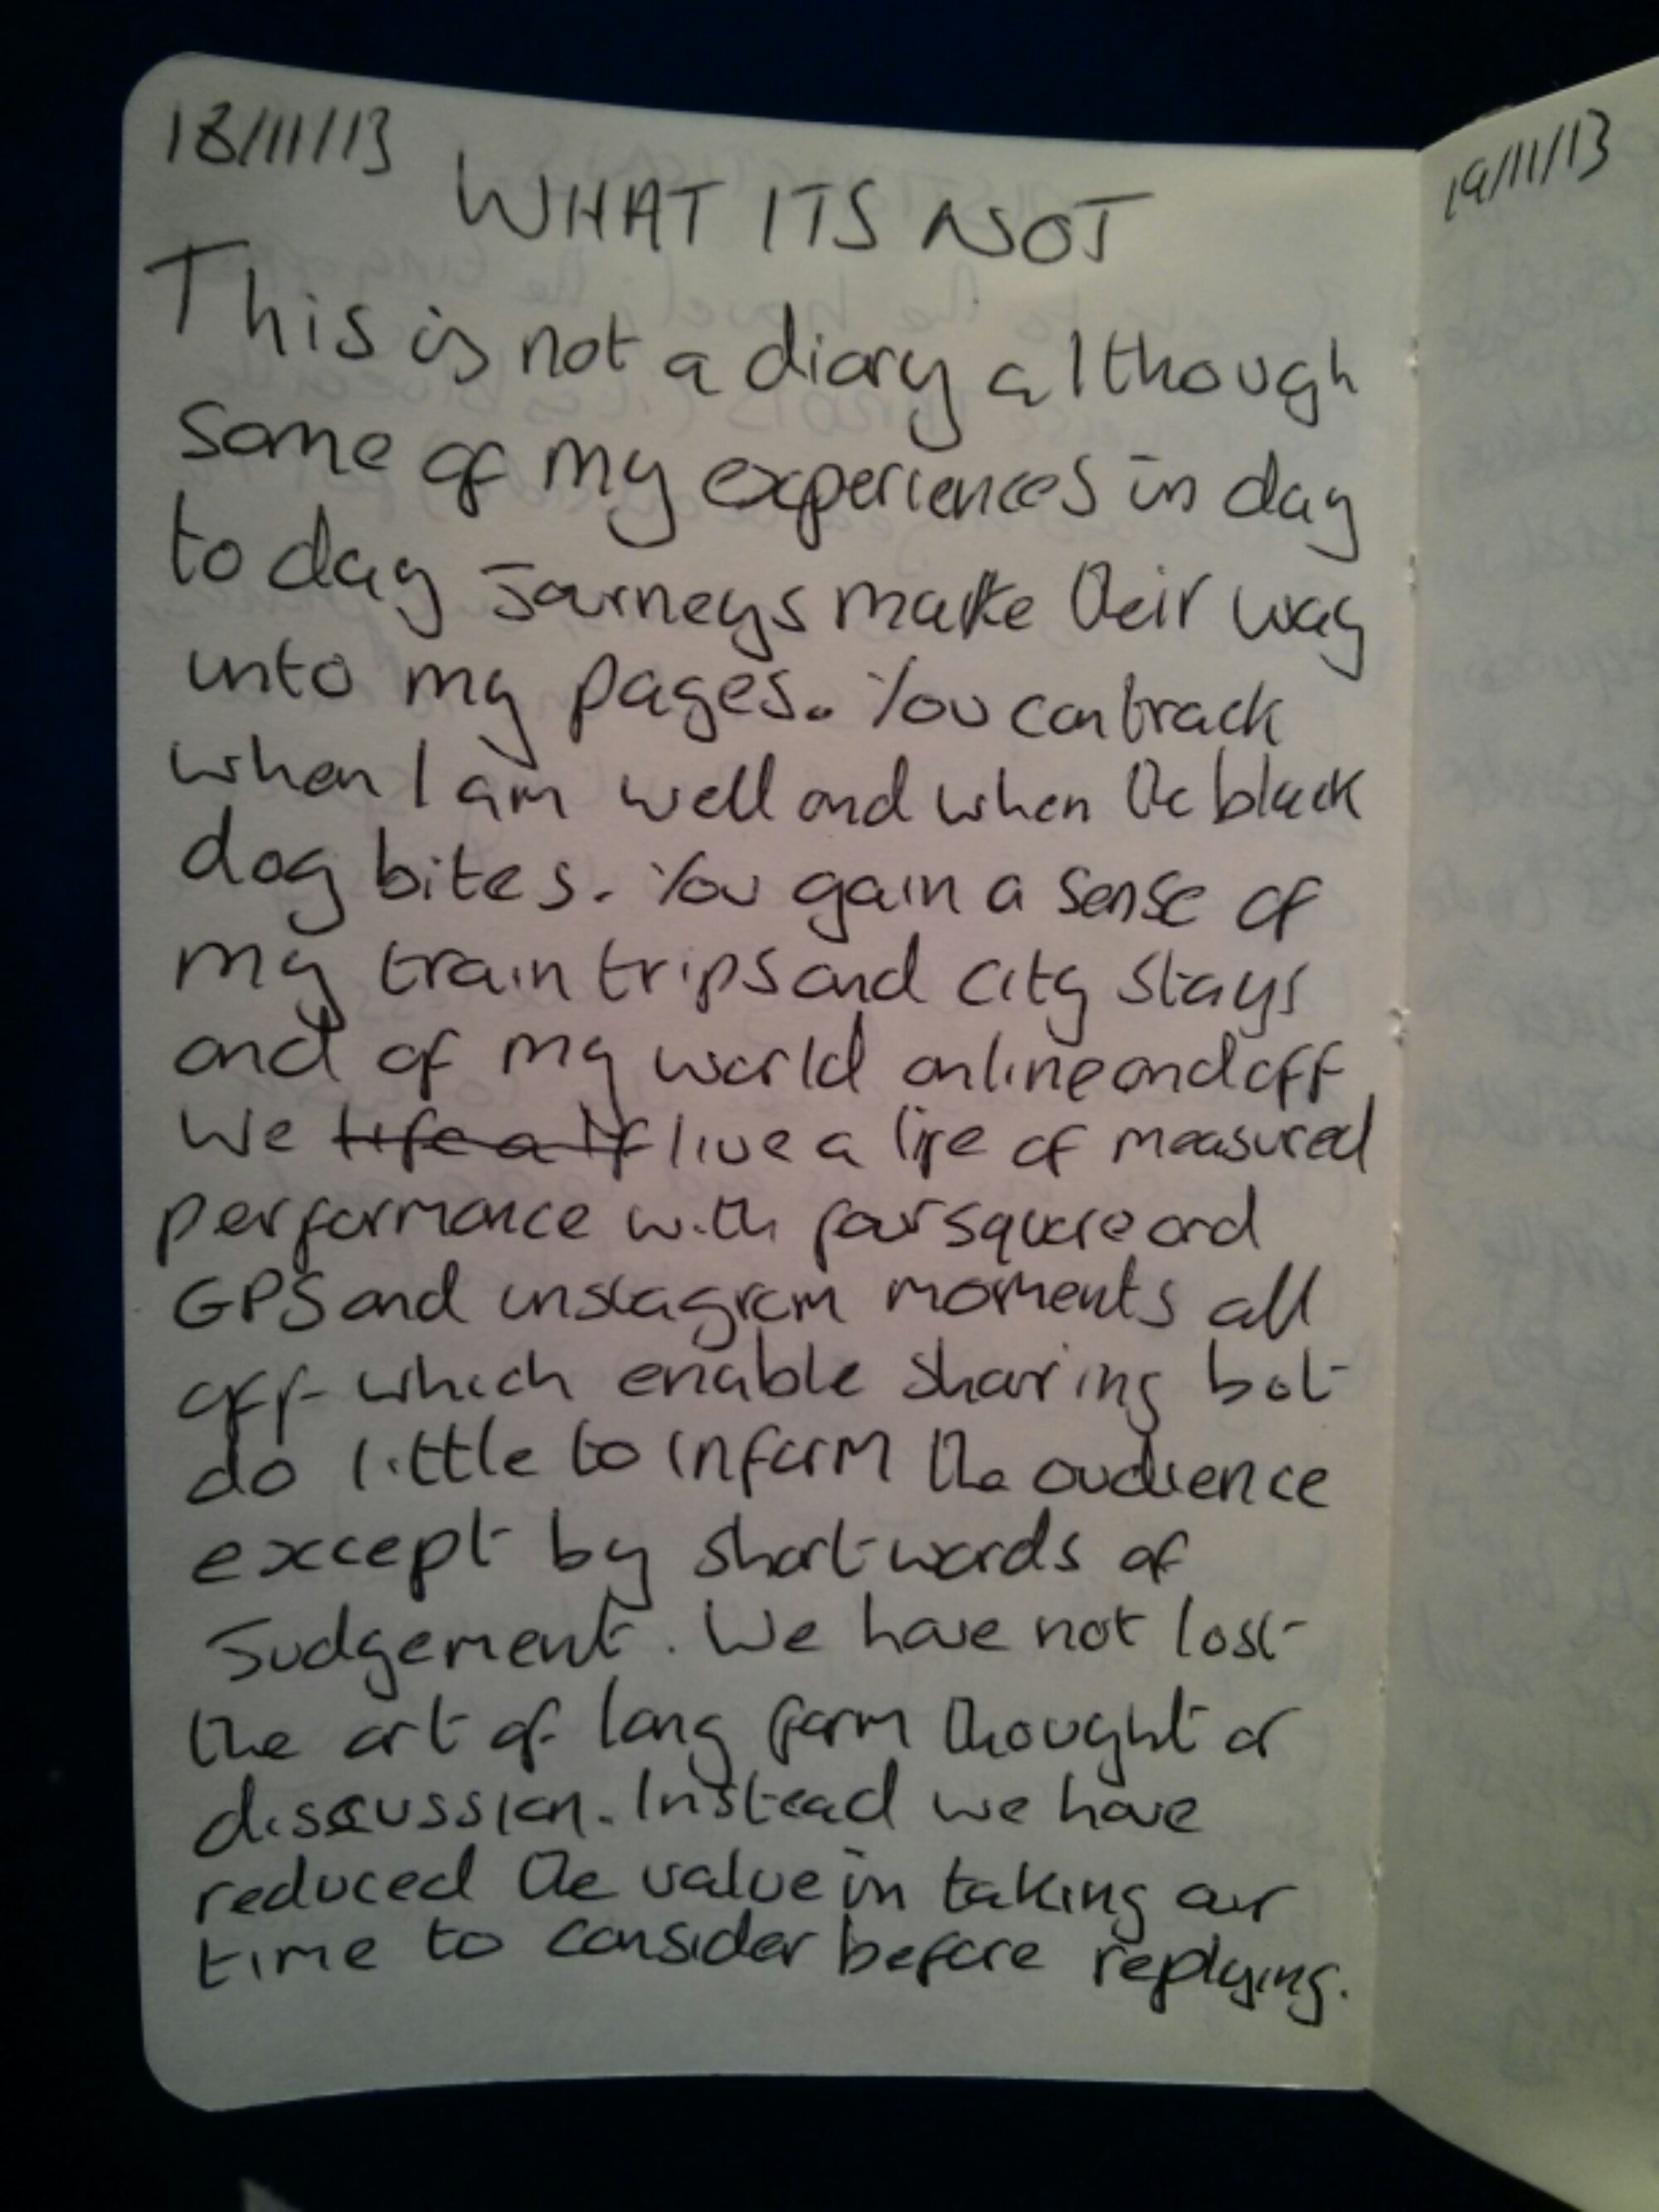 18/11/13
WHAT ITS NOT
This is not a diary although
some of my experiences in day
to day journeys make their way
into my pages. You can track
when I am well and when the black
dog bites. You gain a sense of
my train trips and city stays
and of my world online and off
We life a lf live a life of measured
performance with foursquare and
GPS and instagram moments all
off which enable sharing bot
do little to inform the audience
except by short words of
Judgement. We have not lost
the art of long form thought or
discussion. Instead we have
reduced the value in taking our
time to consider before replying.
19/11/13